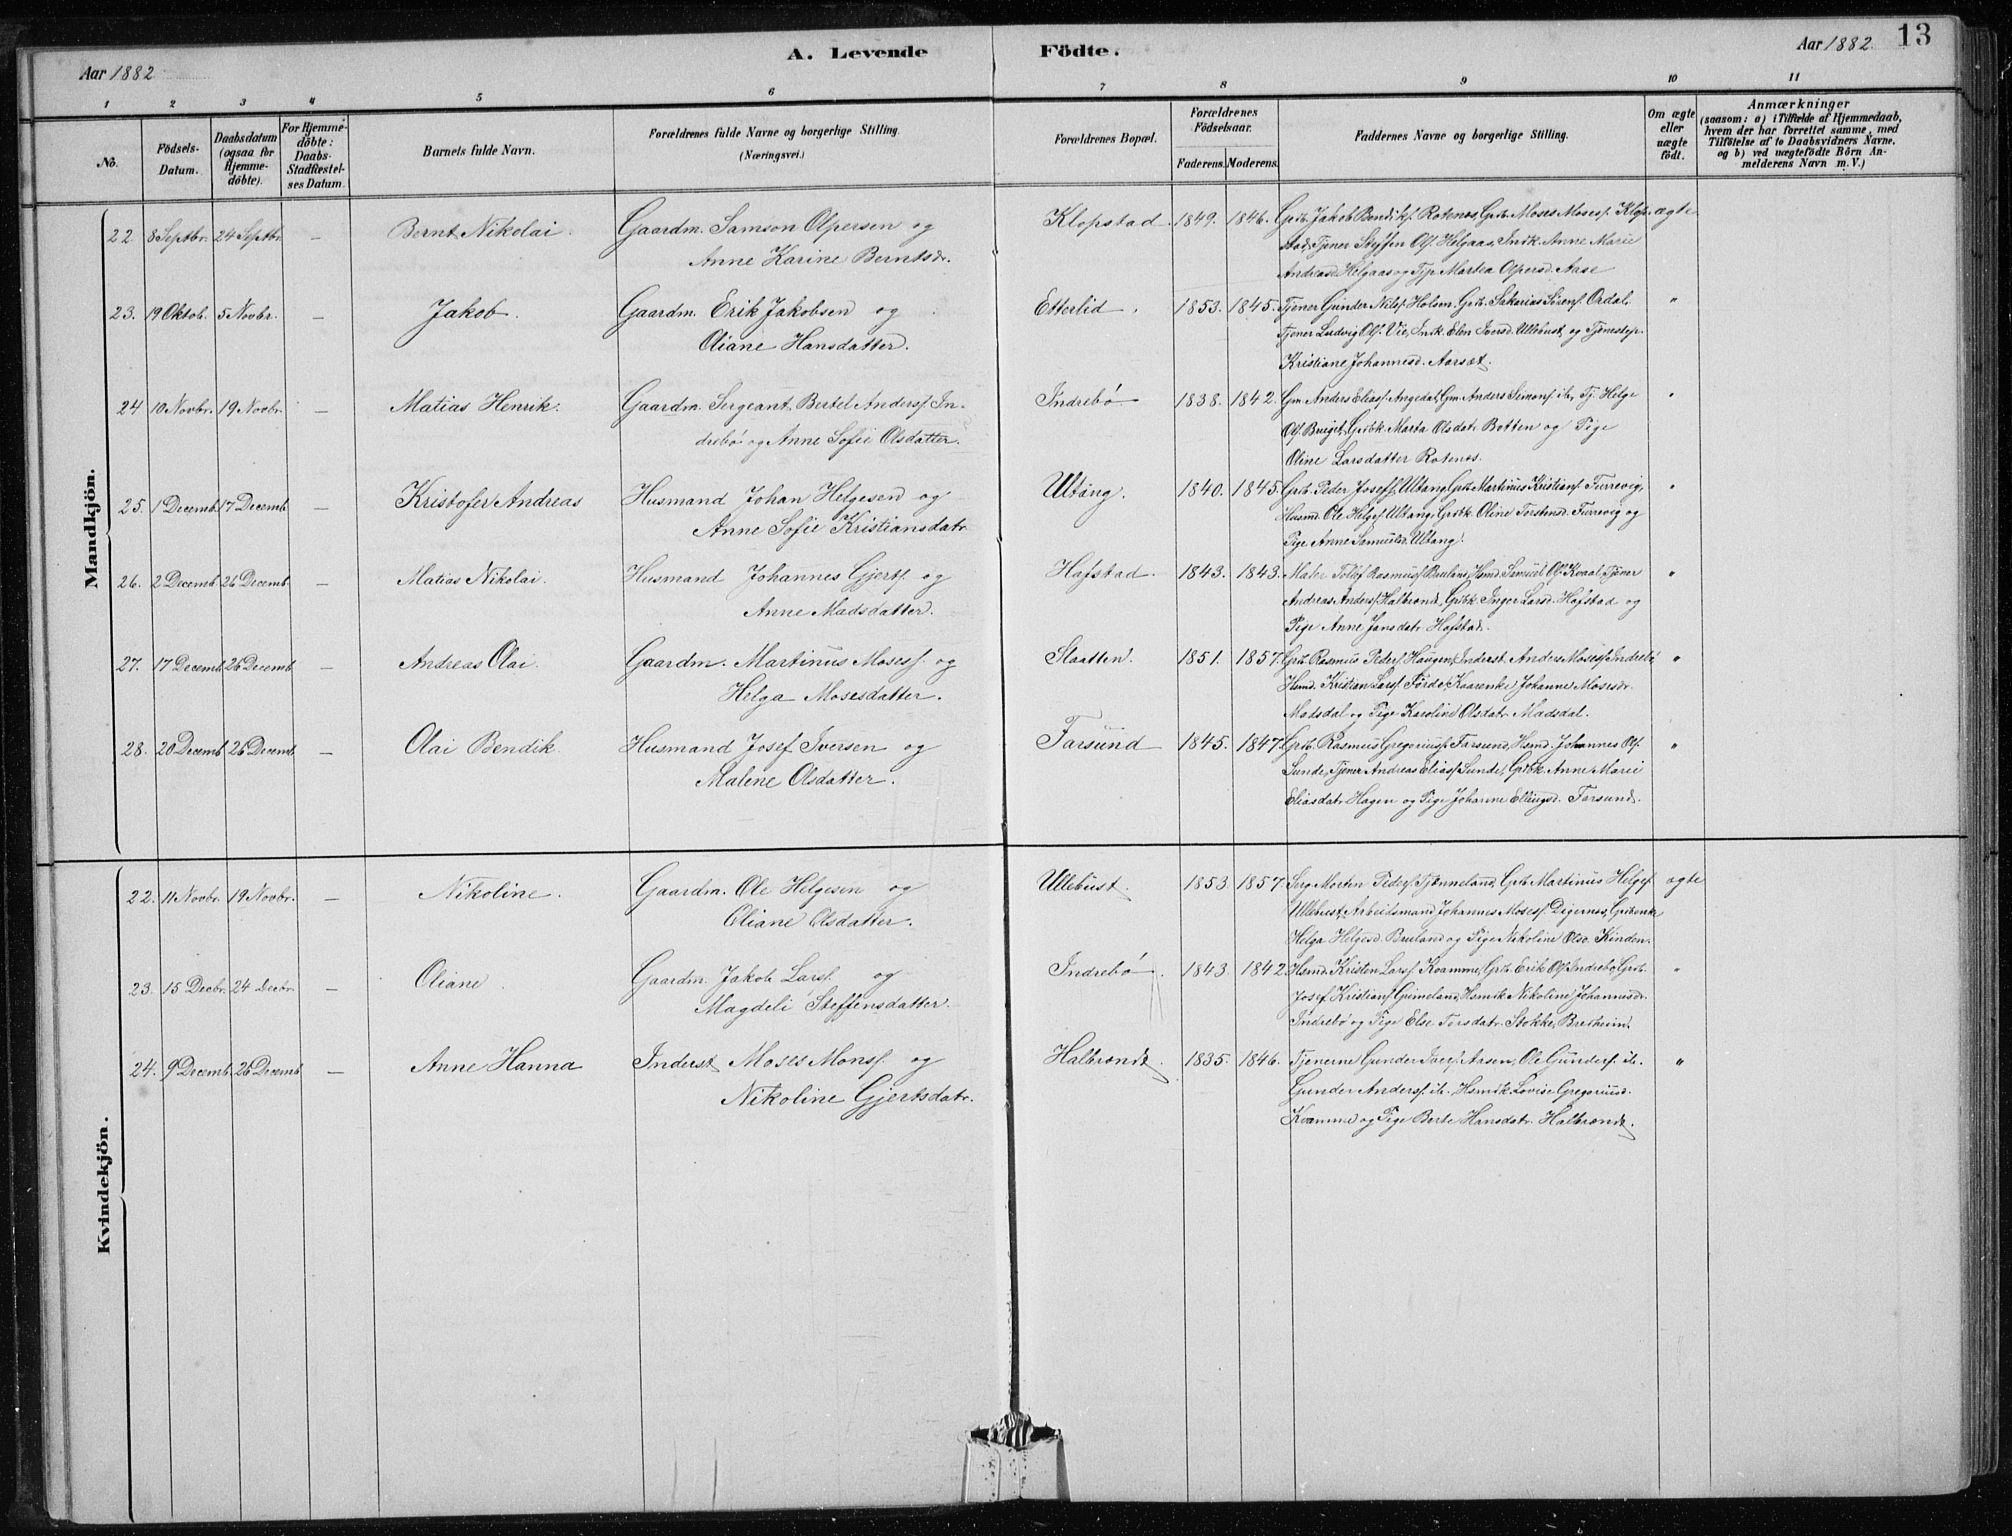 Aar 1882
A. Levende
Födte.
Aar 1882
13
1 2 3 4 5 6 7 8 9 10 11
No.
Födsels-
Datum.
Daabsdatum
(ogsaa for
Hjemme-
döbte).
For Hjemme-
döbte:
Daabs-
Stadfæstel-
ses Datum.
Barnets fulde Navn.
Forældrenes fulde Navne og borgerlige Stilling
(Næringsvei.)
Forældrenes Bopæl.
Forældrenes
Födselsaar.
Faderens. Moderens.
Faddernes Navne og borgerlige Stilling.
Om ægte
eller
uægte
födt.
Anmærkninger
(saasom: a) i Tilfælde af Hjemmedaab,
hvem der har forrettet samme, med
Tilföielse af to Daabsvidners Navne,
og b) ved uægtefödte Börn An-
melderens Navn m. V.)
Mandkjön.
22 8 Septbr. 24 Septbr. — Bernt Nikolai. Gaardm. Samson Olpersen og Klopstad. 1849. 1846. Grdb. Jakob Bendiks. Rotenes, Grdb. Moses Moses. Klop- ægte
Anne Karine Berntsdr. stad, Tjener Steffen Ols. Helgaas, Indk. Anne Marie
Andreasd. Helgaas og Tjp. Martea Olpersd. Aase
23. 19 Oktob. 5 Novbr. — Jakob. Gaardm. Erik Jakobsen og Etterlid. 1853. 1845. Tjener Gunder Nils. Holsen, Grdb. Sakarias Sörens. Ordal, "
Oliane Hansdatter. Tjener Ludvig Ols. Vie, Indk. Elen Iversd. Ullebust og Tjenestep.
Kristiane Johannesd. Aarsæt.
24 10 Novbr. 19 Novbr. — Matias Henrik. Gaardm. Sergeant Bertel Anders. In- Indrebö 1838. 1842. Gm. Anders Elias. Angedal, Gm. Anders Simons. ib., Tj. Helge "
drebö og Anne Sofie Olsdatter. Ols. Bruget, Grdbk. Marta Olsdatr. Botten og Pige
Oline Larsdatter Rotenes.
25. 1 Decemb. 17 Decemb. — Kristofer Andreas Husmand Johan Helgesen og Utvang. 1840. 1845. Grdb. Peder Josefs. Utvang, Grdb. Martinus Kristians. Furevig, "
Anne Sofie Kristiansdatr. Husmd. Ole Helges. Utvang, Grdbk. Oline Torstensd. Furevig og
Pige Anne Samuelsd. Utvang.
26. 2 Decemb. 26 Decemb. — Matias Nikolai. Husmand Johannes Gjerts. og Hafstad. 1843. 1843. Maler Tollef Rasmus. Bruland, Hsmd. Samuel Ols. Kvaal, Tjener "
Anne Madsdatter. Andreas Anders. Halbrend, Grdbk. Inger Larsd. Hafstad og
Pige Anne Jansdatr. Hafstad.
27. 17 Decemb. 26 Decemb. — Andreas Olai. Gaardm. Martinus Moses. og Slaatten. 1851. 1857. Grdb. Rasmus Peders. Haugen, Inderst Anders Moses. Indrebö "
Helga Mosesdatter. Hsmd. Kristian Lars. Förde, Kaarenke Johanne Mosesdr.
Madsdal og Pige Karoline Olsdatr. Madsdal.
28. 20 Decemb. 26 Decemb. — Olai Bendik Husmand Josef Iversen og Farsund 1845. 1847. Grdb. Rasmus Gregorius. Farsund, Hsmd. Johannes Ols. "
Malene Olsdatter. Sunde, Tjener Andreas Elias. Sunde, Grdbk. Anne Marie
Eliasdatr. Hagen og Pige Johanne Ellingsd. Farsund.
Kvindekjön.
22. 11 Novbr. 19 Novbr. — Nikoline. Gaardm. Ole Helgesen og Ullebust. 1853. 1857. Serg. Morten Peders. Tjønneland, Grdb. Martinus Helges. ægte
Oliane Olsdatter. Ullebust, Arbeidsmand Johannes Moses. Digernes, Grdbenke
Helga Helgesd. Bruland og Pige Nikoline Olsd. Kinden.
23. 15 Decbr. 24 Decbr. — Oliane. Gaardm. Jakob Lars. og Indrebö. 1843. 1842. Hsmd. Kristen Lars. Kvamme, Grdb. Erik Ols. Indrebö, Grdb. "
Magdeli Steffensdatter. Josef Kristians. Grimeland, Hsmdk. Nikoline Johannesdr.
Indrebö og Pige Else Torsdatr. Stokke, Bredheim.
24. 9 Decemb. 26 Decemb. — Anne Hanna Inderst Moses Mons. og Halbrendt. 1835. 1846. Tjenerne Gunder Ivers. Aasen, Ole Gunders. ib. "
Nikoline Gjertsdatr. Gunder Anders. ib. Hsmdk. Lovise Gregoriusd.
Kvamme og Pige Berte Hansdatr. Halbrendt.